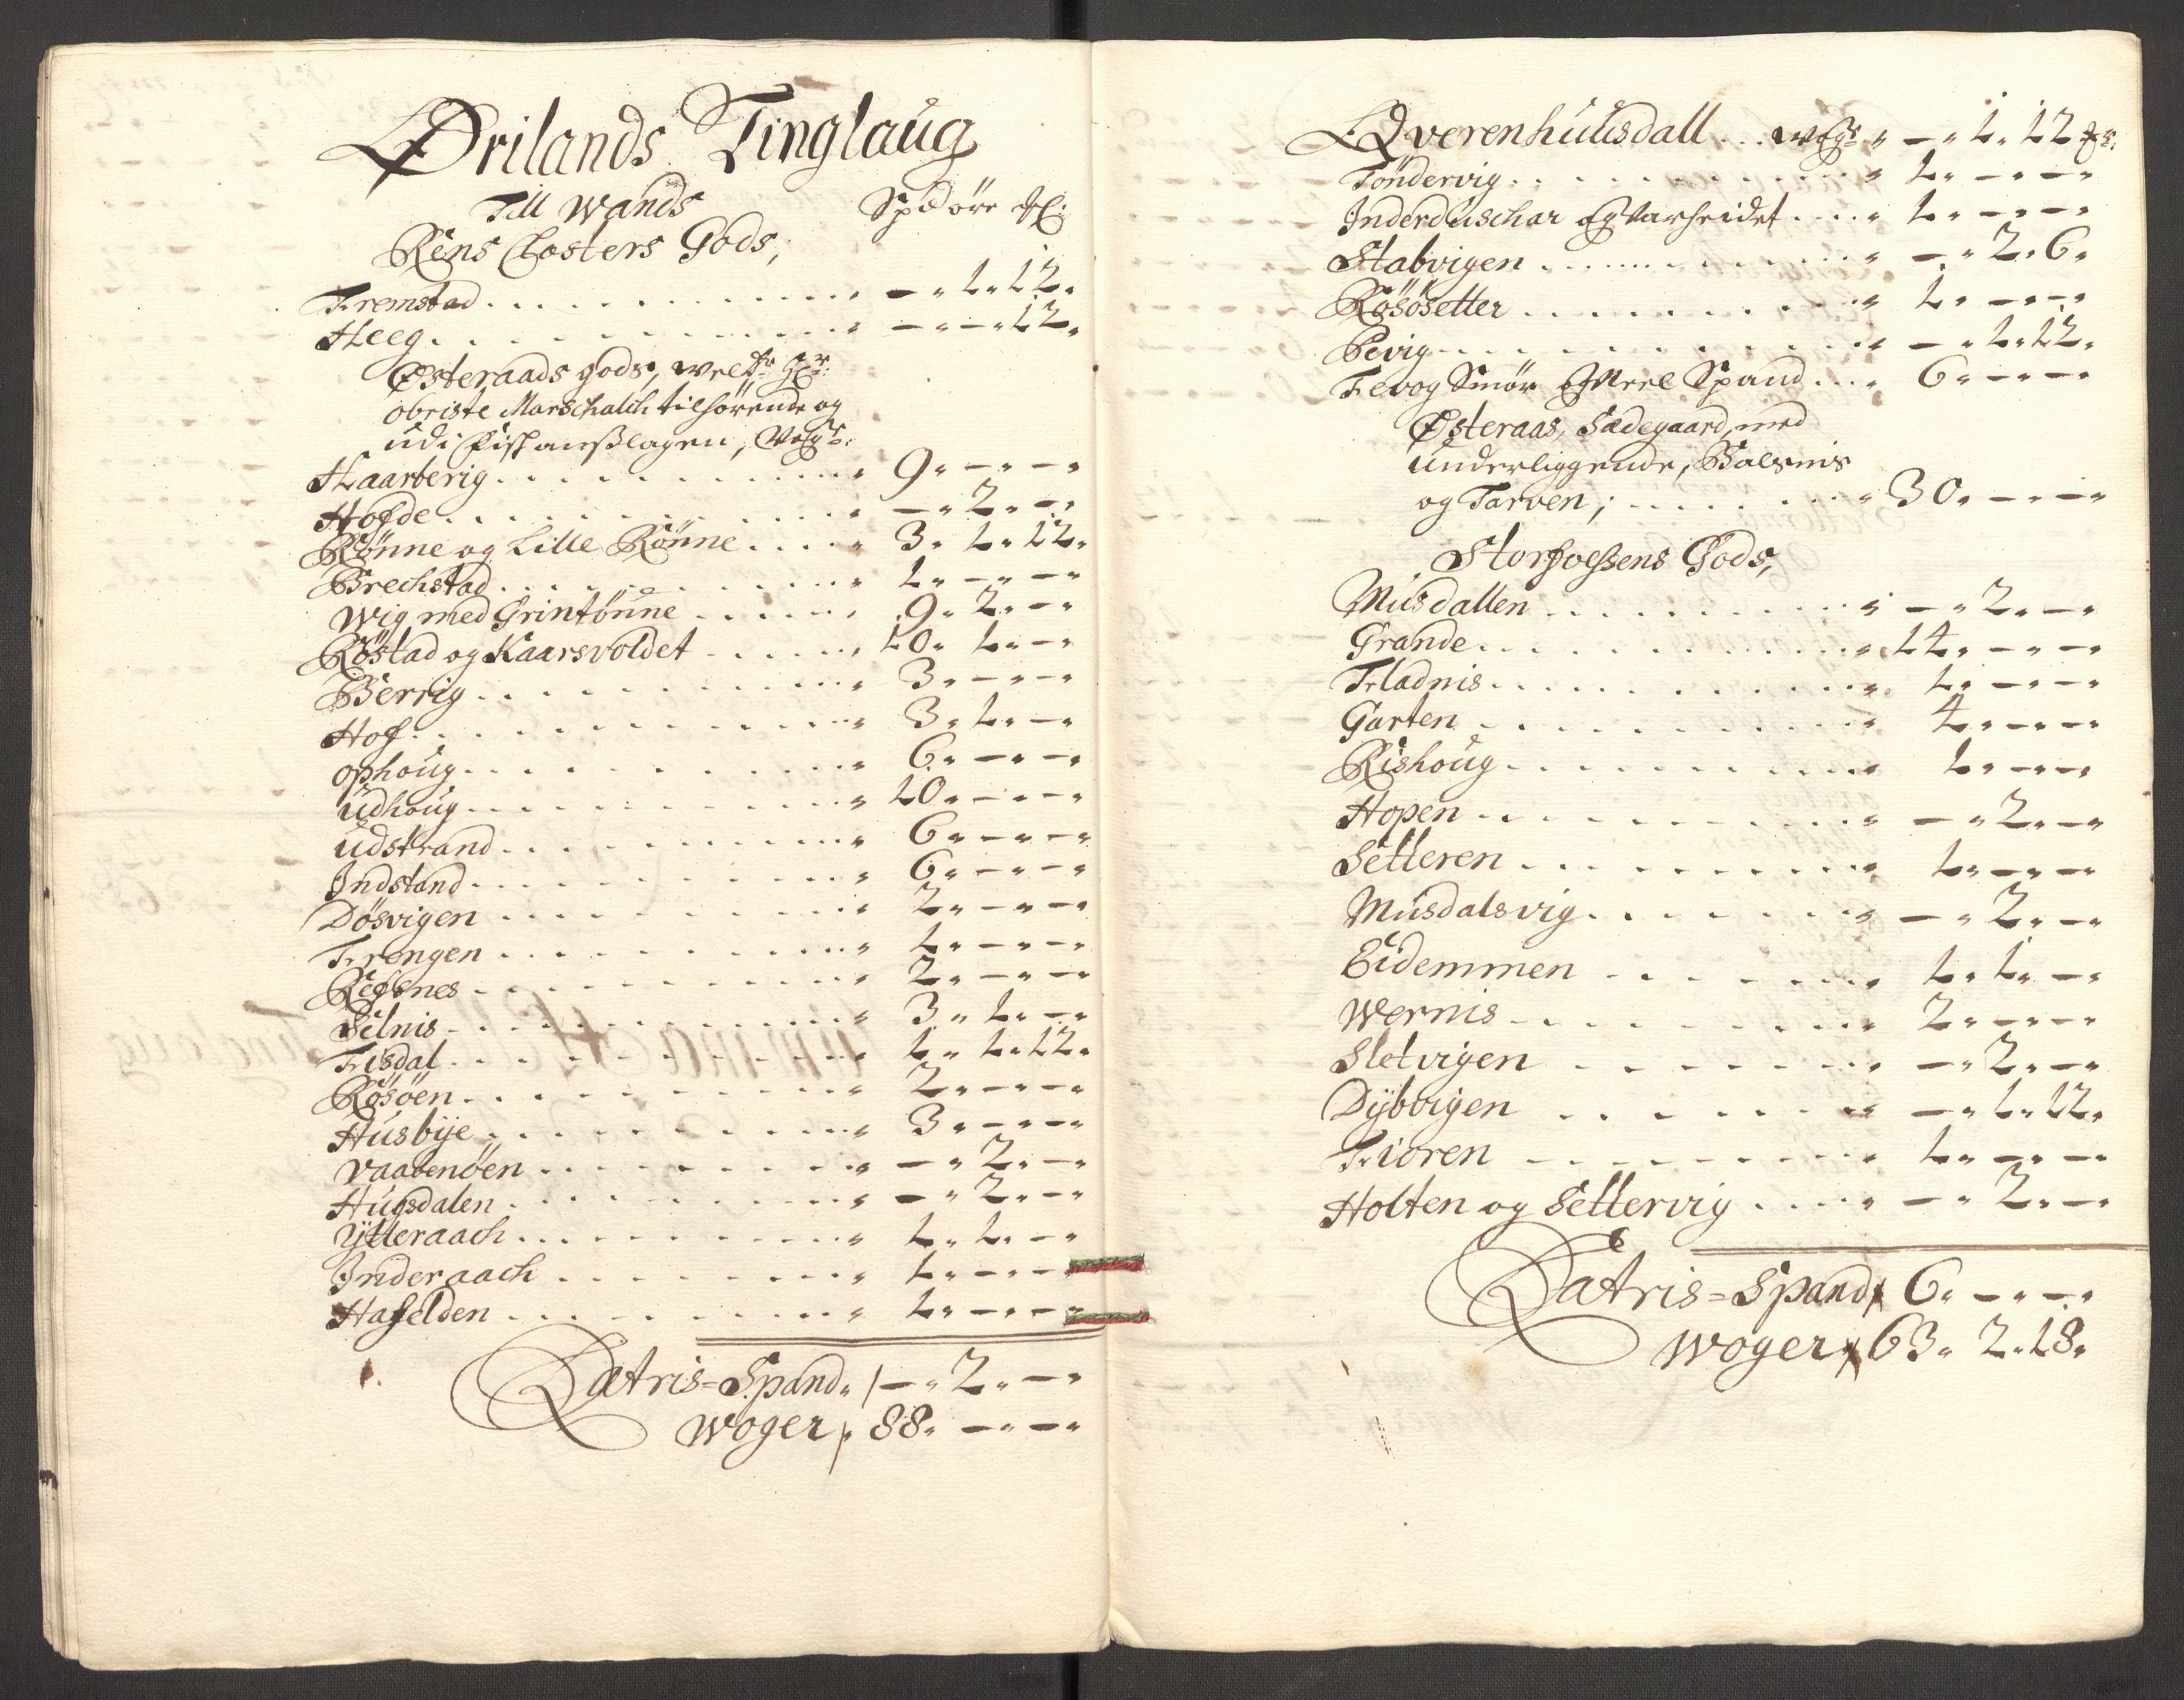 Ørilands Tinglaug
Till Wands Spd öre
Rens Closters Gods,
Fremstad — " 1 " 12 "
Heeg — " — " 12 "
Østeraads gods,
obriste Marschalch tilhörende og
udi
Haarberig 9 " — " — "
Hofde — " 2 " — "
Rönne og Lille Rönne 3 " 1 " 12 "
Brechstad 1 " — " — "
Wig med Grintönne 9 " 2 " — "
Röstad og Kaarsvoldet 10 " 1 " — "
Berrig 3 " — " — "
Hof 3 " 1 " — "
ophoug 6 " — " — "
Udhoug 10 " — " — "
Udstrand 6 " — " — "
Indstand 6 " — " — "
Dösvigen 2 " — " — "
Frengen 1 " — " — "
Refsnes 2 " — " — "
Selnis 3 " 1 " — "
Fisdal 1 " 1 " 12 "
Rösöen 2 " — " — "
Husbÿe 3 " — " — "
Vaabenöen — " 2 " — "
Hugsdalen — " 2 " — "
Ÿtteraach 1 " 1 " — "
Inderaach 1 " — " — "
Hafelden 1 " — " — "
Latris=Spand " — " 2 " — "
Woger " 88 " — " — "
Qverenhuusdall " — " 1 " 12
Töndervig " 1 " — " — "
Inderduschar og 1 " — " — "
Stabvigen — " 2 " 6 "
Rösösetter 1 " — " — "
Pevig — " 1 " 12 "
Fevog Smör Spand 6 " — " — "
Østeraas, Sædegaard, med
underliggende,
og Tarven; 30 " — " — "
Storfossens Gods,
Musdallen — " 2 " — "
Grande 14 " — " — "
Fladnis 1 " — " — "
Garten 4 " — " — "
Rishoug 1 " — " — "
Hopen — " 2 " — "
Setteren 1 " — " — "
Musdalsvig — " 2 " — "
Eidemmen 1 " 1 " — "
Wernis 2 " — " — "
Sletvigen — " 2 " — "
Dÿbvigen — " 1 " 12 "
Fioren 1 " — " — "
Holten og Settervig — " 2 " — "
Latris=Spand 6 " — " — "
Woger 63 " 2 " 18 "